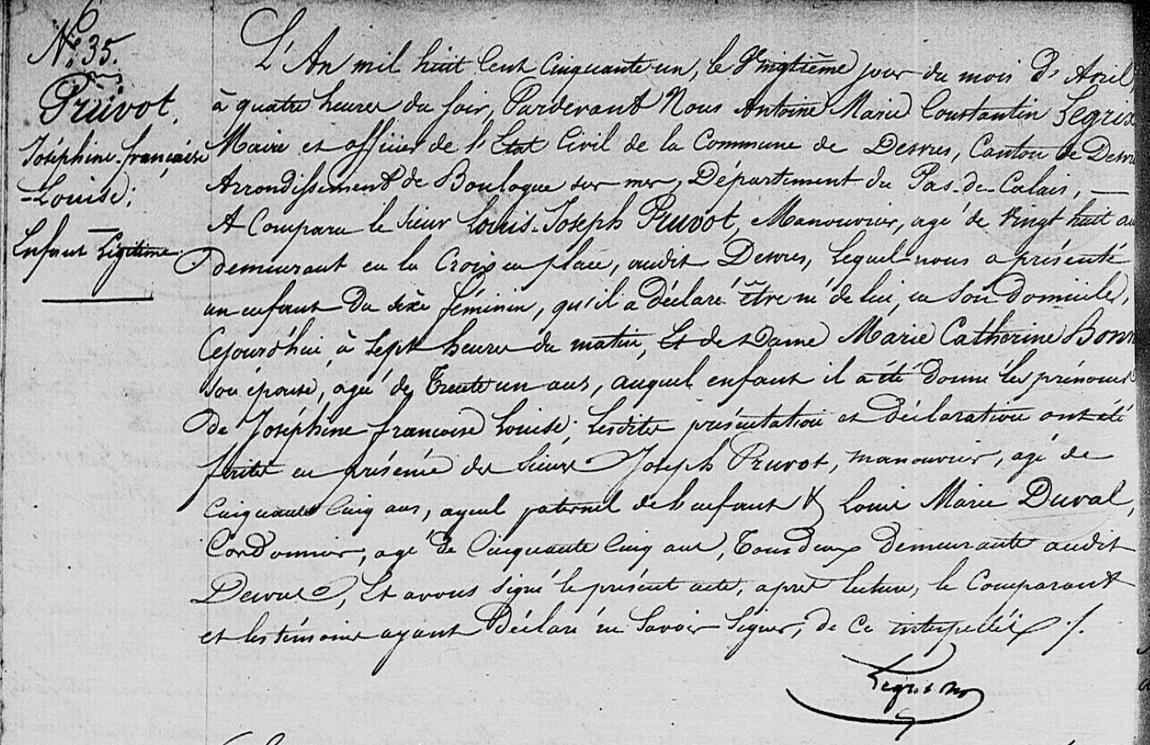 6
N° 35.
Pruvot,
Joséphine-françoise
-Louise;
Enfant Légitime
L'An mil huit Cent Cinquante un, le Vingtième jour du mois d'Avril,
à quatre heures du soir, Pardevant Nous Antoine Marie Constantin Legrix
Maire et officier de l'Etat Civil de la Commune de Desvres, Canton de Desvres
Arrondissement de Boulogne sur mer, Département du Pas-de-Calais, —
A Comparu le sieur Louis-Joseph Pruvot, Manouvrier, agé de Vingt huit ans
demeurant en la Croix en place, audit Desvres, Lequel nous a présenté
un enfant du sexe féminin, qu'il a déclaré être né de lui, en son domicile,
Cejourd'hui, à Sept heures du matin, Et de Dame Marie Catherine Bonn
son épouse, agée de Trente un ans, auquel enfant il a été donné les prénoms
de Joséphine francoise Louise; Lesdites présentation et déclaration ont été
faites en présence des Sieurs Joseph Pruvot, manouvrier, agé de
Cinquante Cinq ans, ayeul paternel de l'enfant & Louis Marie Duval,
Cordonnier, agé de Cinquante Cinq ans, Tous deux demeurants audit
Desvres, Et avons signé le présent acte, après lecture, le Comparant
et les témoins ayant Déclaré ne Savoir Signer, de Ce interpellés ./.